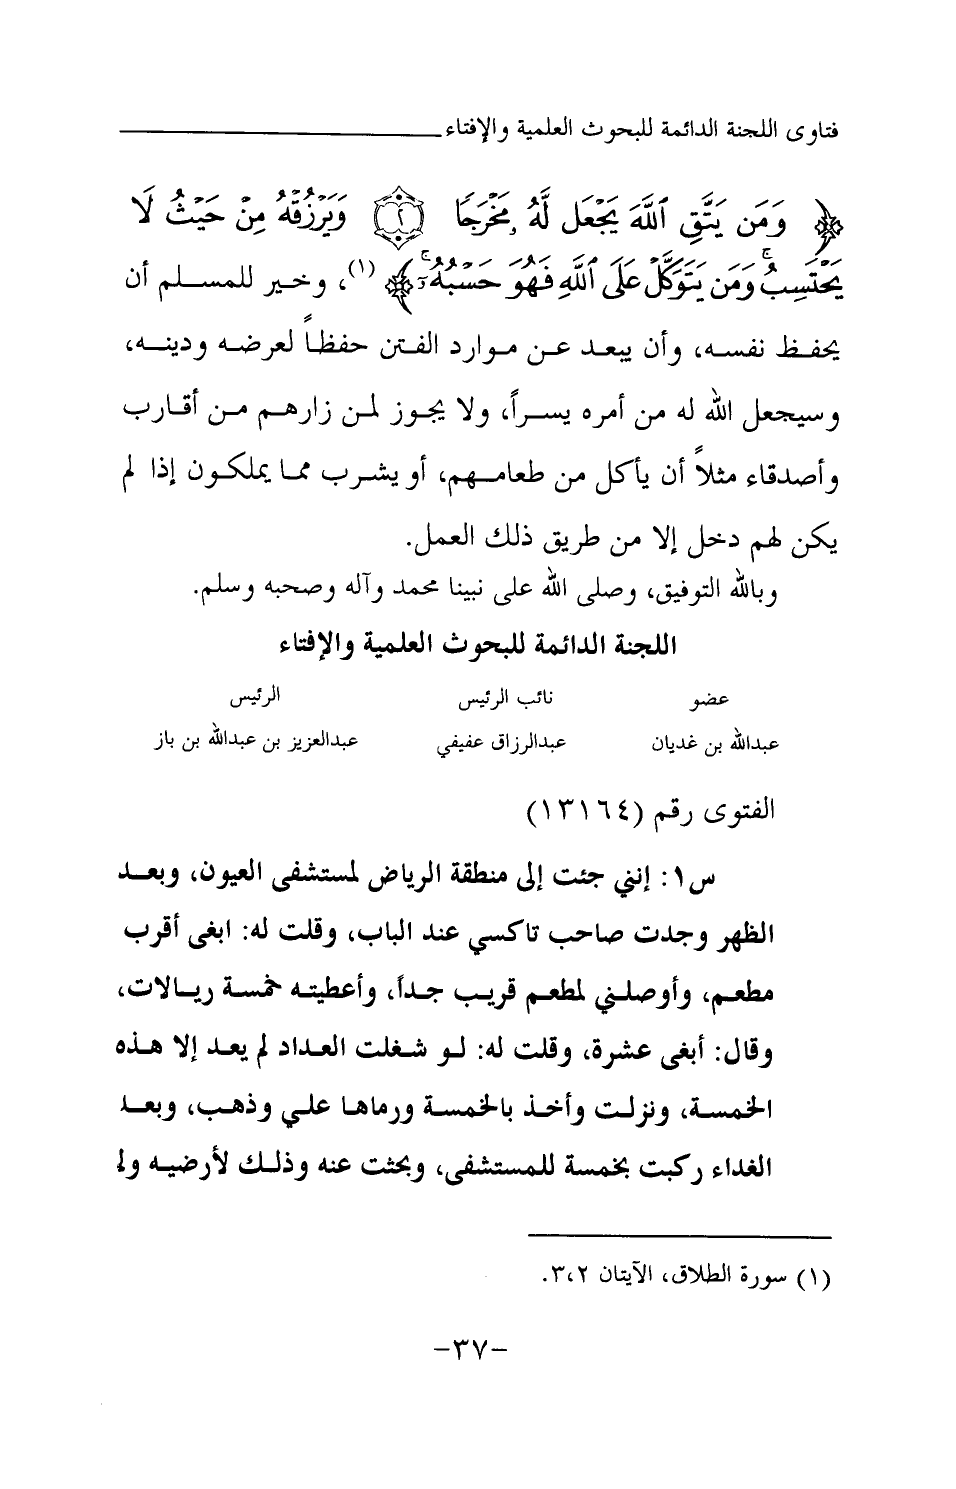 فتاوى اللجنة الدائمة للبحوث العلمية والإفتاء
﴿ وَمَن يَتَّقِ ٱللَّهَ يَجْعَل لَّهُۥ مَخْرَجًا ۝٢ وَيَرْزُقْهُ مِنْ حَيْثُ لَا
يَحْتَسِبُ ۚ وَمَن يَتَوَكَّلْ عَلَى ٱللَّهِ فَهُوَ حَسْبُهُۥٓ ۚ ﴾ (١)، وخير للمسلم أن
يحفظ نفسه، وأن يبعد عن موارد الفتن حفظاً لعرضه ودينه،
وسيجعل الله له من أمره يسراً، ولا يجوز لمن زارهم من أقارب
وأصدقاء مثلاً أن يأكل من طعامهم، أو يشرب مما يملكون إذا لم
يكن لهم دخل إلا من طريق ذلك العمل.
وبالله التوفيق، وصلى الله على نبينا محمد وآله وصحبه وسلم.
اللجنة الدائمة للبحوث العلمية والإفتاء
عضو نائب الرئيس الرئيس
عبدالله بن غديان عبدالرزاق عفيفي عبدالعزيز بن عبدالله بن باز
الفتوى رقم (١٣١٦٤)
س١: إنني جئت إلى منطقة الرياض لمستشفى العيون، وبعد
الظهر وجدت صاحب تاكسي عند الباب، وقلت له: ابغى أقرب
مطعم، وأوصلني لمطعم قريب جداً، وأعطيته خمسة ريالات،
وقال: أبغى عشرة، وقلت له: لو شغلت العداد لم يعد إلا هذه
الخمسة، ونزلت وأخذ بالخمسة ورماها علي وذهب، وبعد
الغداء ركبت بخمسة للمستشفى، وبحثت عنه وذلك لأرضيه ولم
(١) سورة الطلاق، الآيتان ٢،٣.
-٣٧-